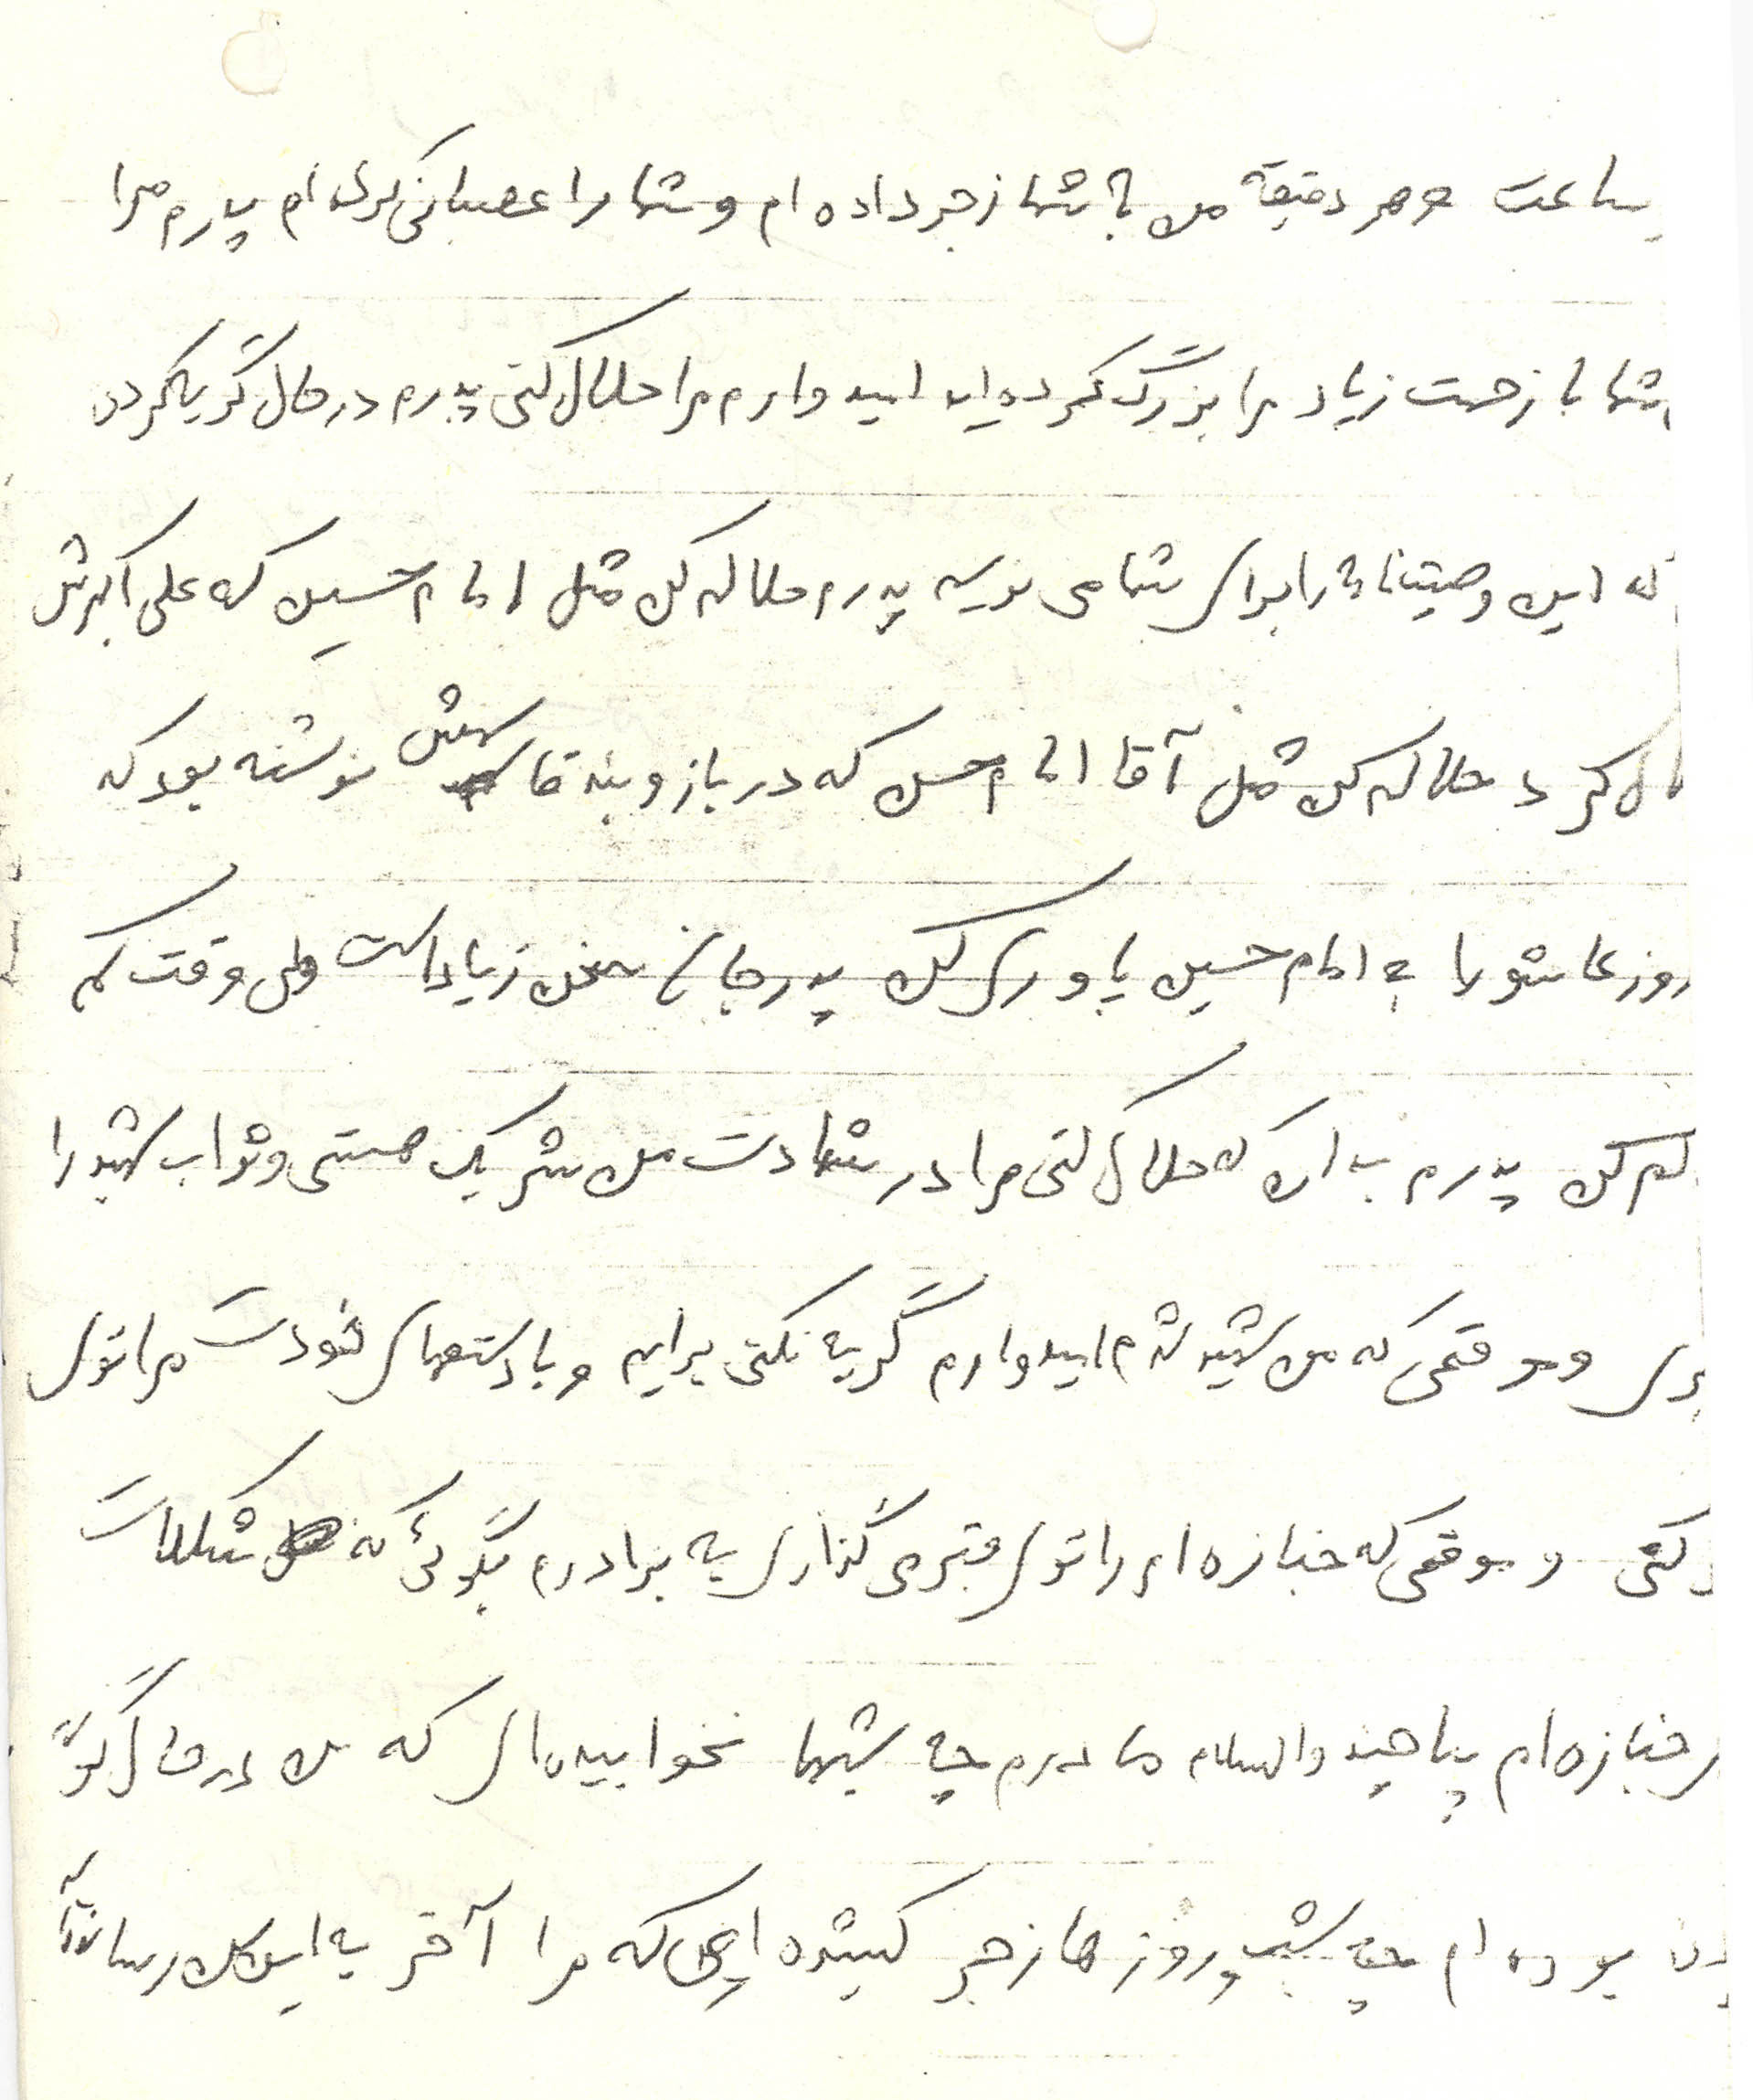 ساعت و هر دقیقه من با شما زجر داده ام و شما را عصبانی کرده ام پدرم مرا
شما با زحمت زیاد مرا بزرگ کرده اید امیدوارم مرا حلال کنی پدرم در حال گریه کردن
که این وصیتنامه را برای شما می نویسم پدرم حلالم کن مثل امام حسین که علی اکبرش
کرد حلالم کن مثل آقا امام حسن که در بازو بند قاسمش نوشته بود که
روز عاشورا به امام حسین یاوری کن پدر جان سخن زیاد است ولی وقت کم
کن پدرم بدان که حلال کنی مرا در شهادت من شریک هستی و ثواب شهید را
و موقعی که من شهید شدم امیدوارم گریه نکنی برایم و با دستهای خودت مرا توی
کنی و موقعی که جنازه ام را توی قبر می گذاری به برادرم بگوئی که شکلات
جنازه ام بپاچید والسلام مادرم چه شبها نخوابیدهای که من در حال
بوده ام چه شب و روزها زجر کشیده ای که مرا آخر به این سن رسانده